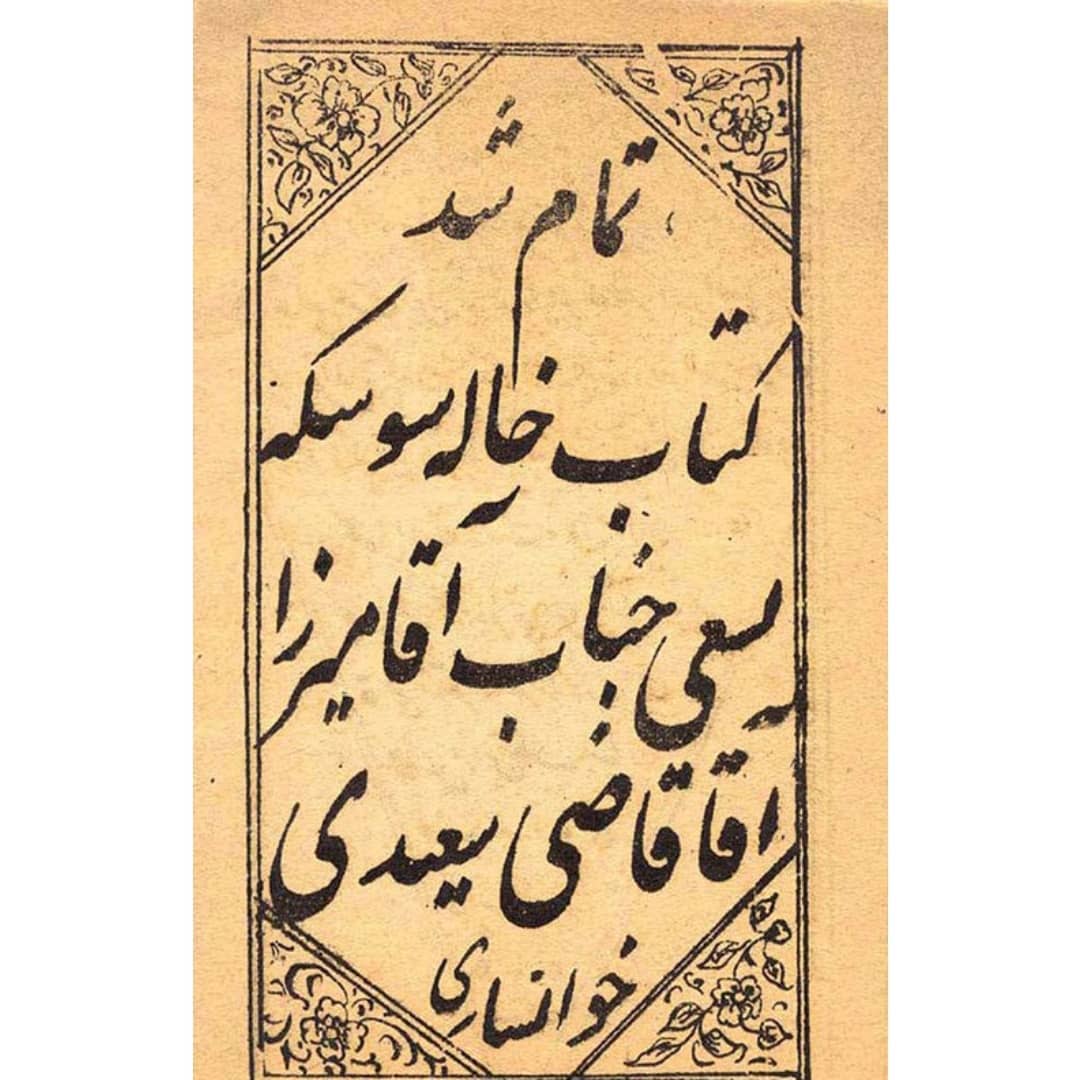 تمام شد
کتاب خاله سوسکه
بسعی جناب آقا میرزا
آقا قاضی سعیدی
خوانساری